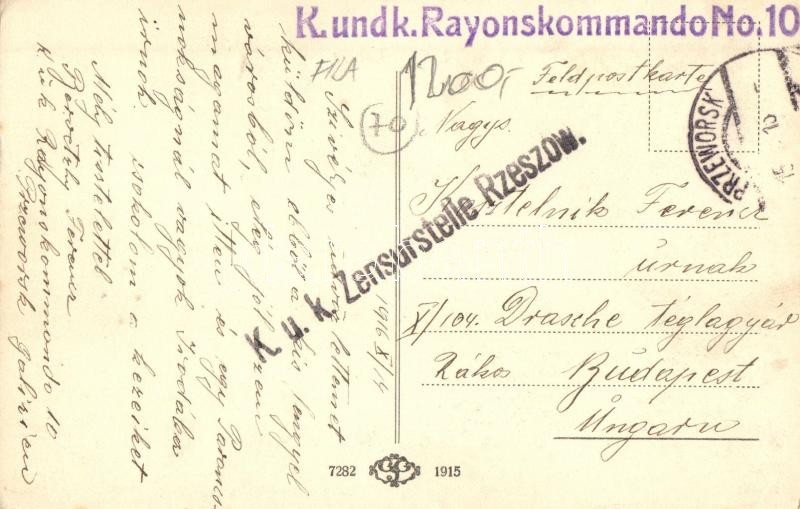 K. und k. Rayonskommando No. 10
FILA
1200,-
70
Feldpostkarte
PRZEWORSK
K. u. k. Zensurstelle Rzeszow.
Nagys.
Kostelnik Ferenc
úrnak
X/104. Drasche téglagyár
Rákos Budapest
Ungarn
1916 X/14
Szivélyes üdvözletemet
küldöm ebből a kis lengyel
városból, elég jól érzem
magamat itten és egy Parancs-
nokságnál vagyok Irodába
irnok. csokolom a kezeiket
Mély tisztelettel
Ferenc
K.u.k Rayonskommondo 10
Przeworsk Galizien
7282
1915